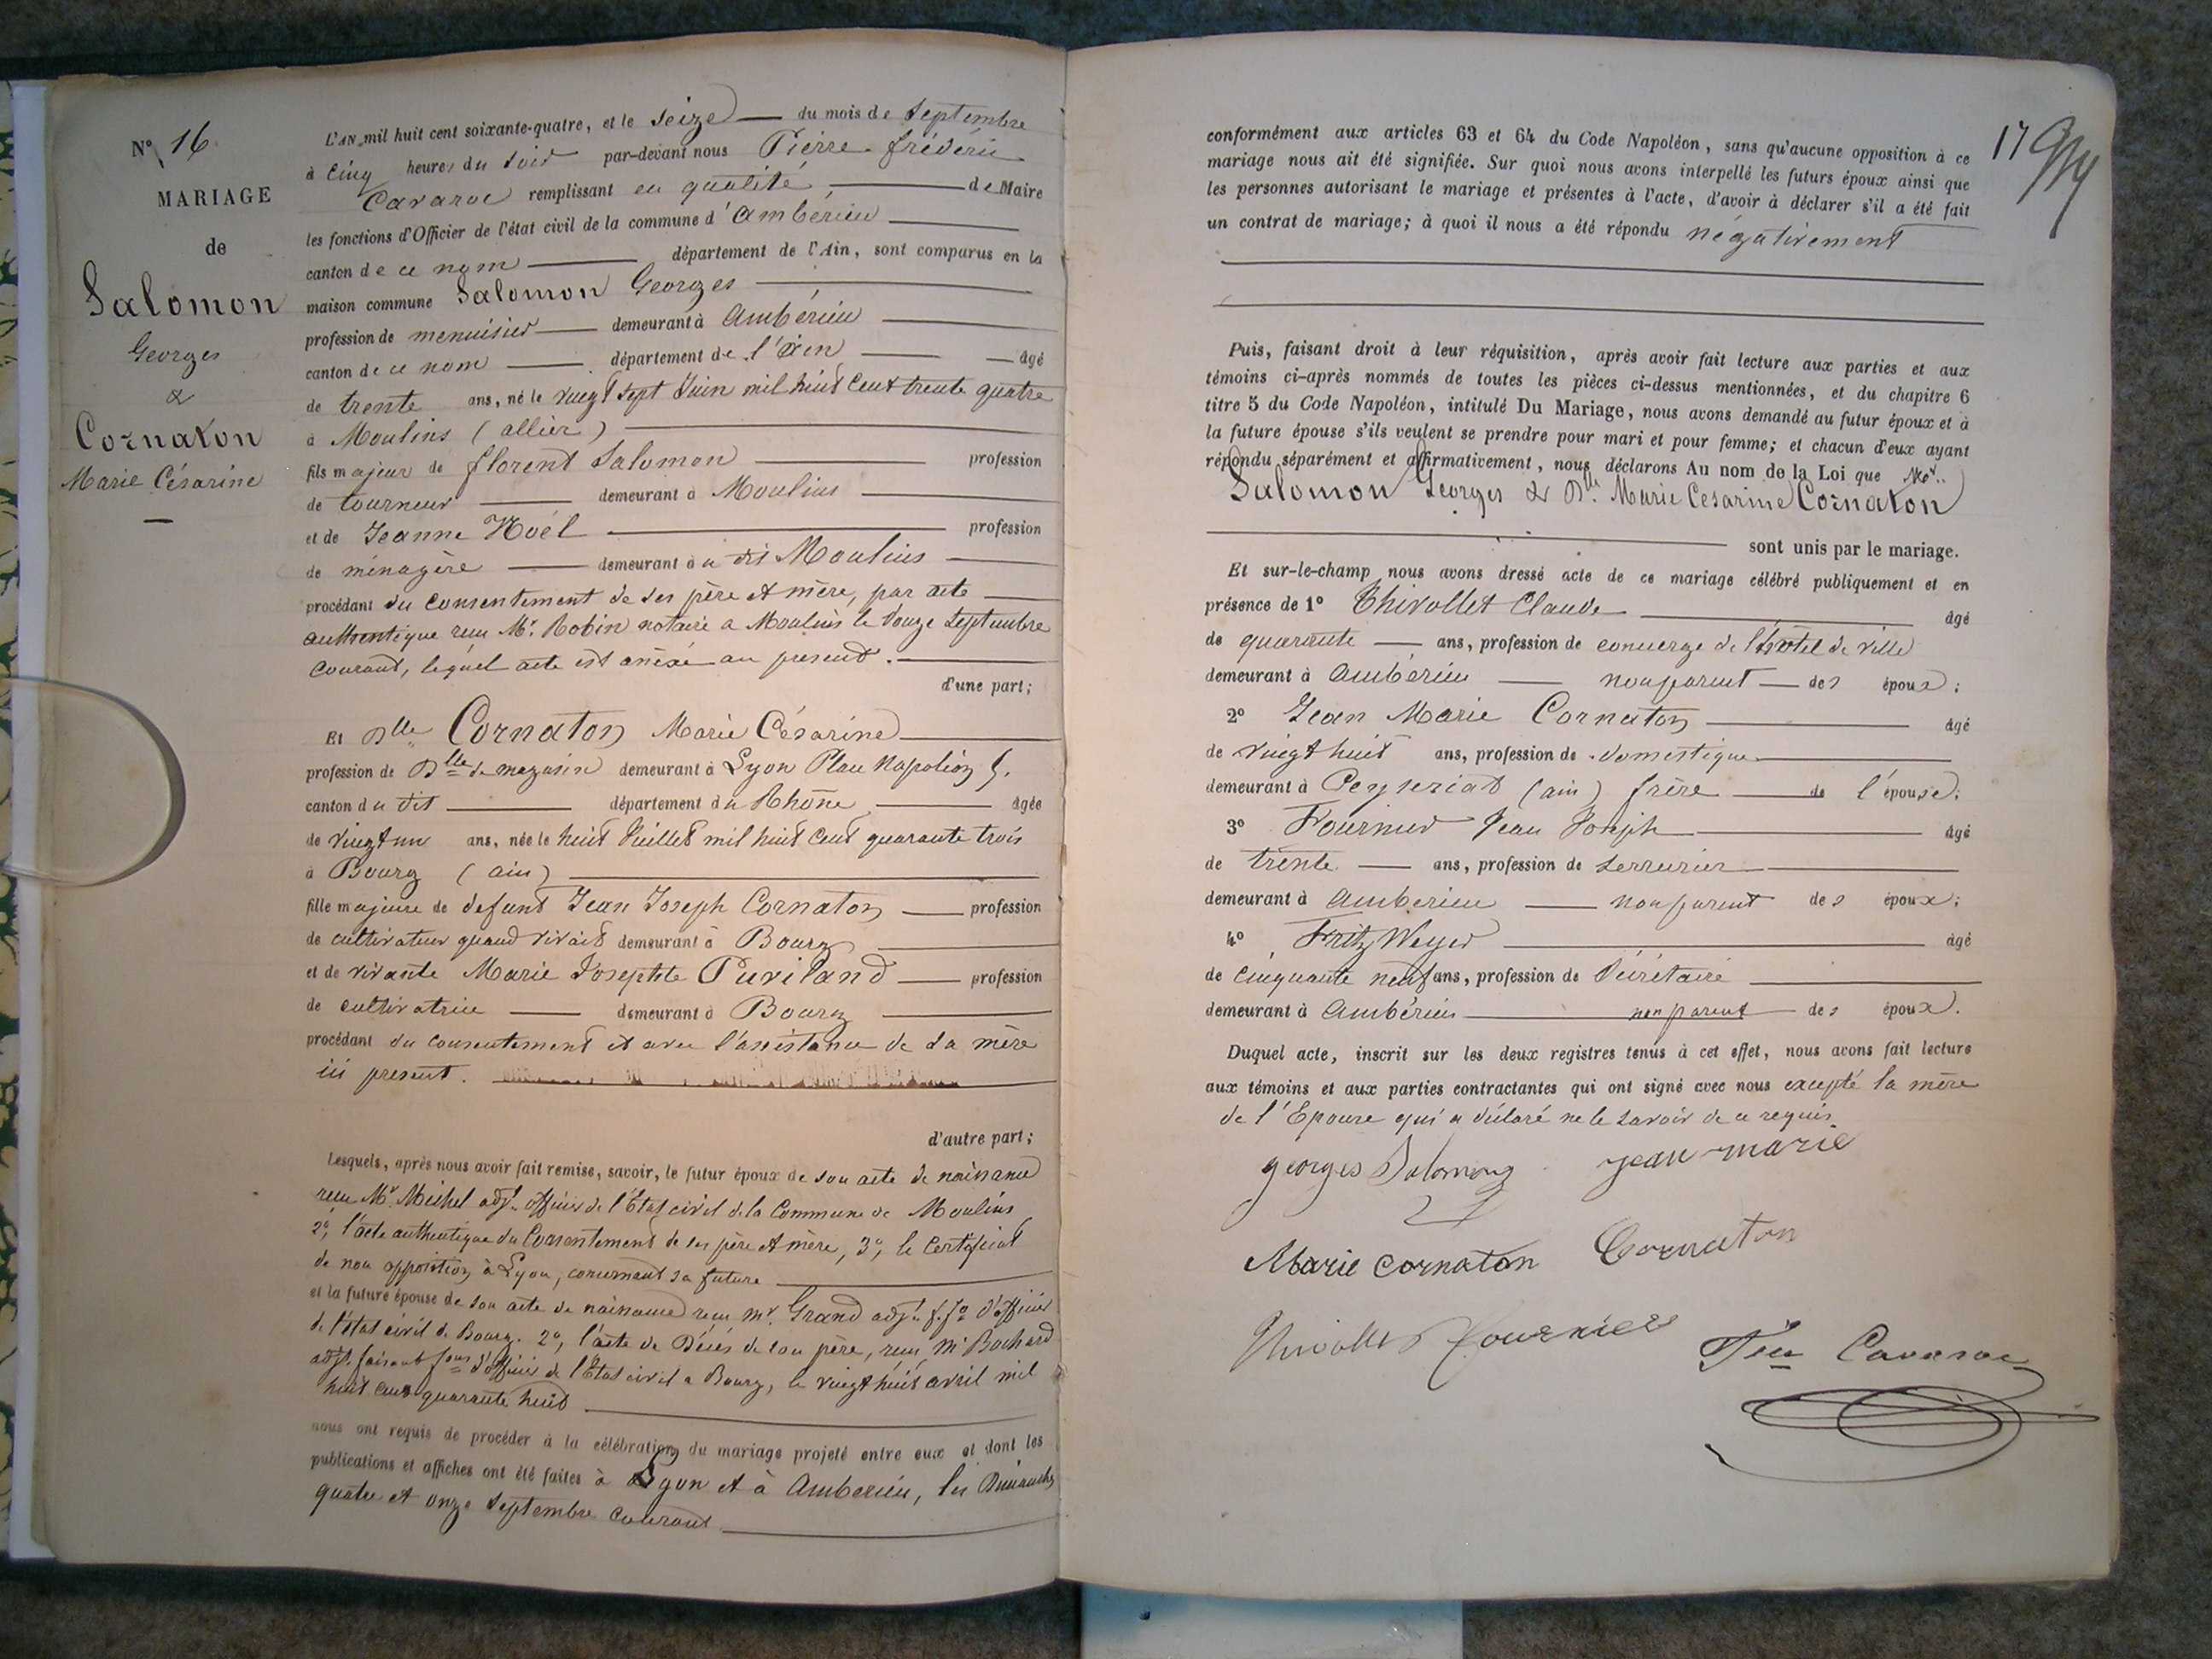 N° 16
MARIAGE
de
Salomon
Georges
&
Cornaton
Marie Césarine
L'AN mil huit cent soixante-quatre, et le seize du mois de Septembre
à cinq heures du soir par-devant nous Pierre frédéric
Cavaroc remplissant en qualité de Maire
les fonctions d'Officier de l'état civil de la commune d'Ambérieu
canton de ce nom département de l'Ain, sont comparus en la
maison commune Salomon Georges
profession de menuisier demeurant à Ambérieu
canton de ce nom département de l'Ain âgé
de trente ans, né le vingt sept Juin mil huit cent trente quatre
à Moulins (allier)
fils majeur de florent Salomon profession
de tourneur demeurant à Moulins
et de Jeanne Noël profession
de ménagère demeurant à u dit Moulins
procédant du consentement de ses père et mère, par acte
authentique reçu Mr. Robin notaire a Moulins le douze Septembre
courant, lequel acte est anéxé au present.
d'une part;
Et Dlle Cornaton Marie Césarine
profession de Dlle de magasin demeurant à Lyon Place Napoléon 5.
canton du dit département du Rhône âgée
de vingt un ans, née le huit Juillet mil huit cent quarante trois
à Bourg (ain)
fille majeure de defunt Jean Joseph Cornaton profession
de cultivateur quand vivait demeurant à Bourg
et de vivante Marie Josephte Puviland profession
de cultivatrice demeurant à Bourg
procédant du consentement et avec l'assistance de sa mère
ici present.
d'autre part;
Lesquels, après nous avoir fait remise, savoir, le futur époux de son acte de naissance
reçu Mr. Michel adjt. officier de l'État civil de la Commune de Moulins
2°, l'acte authentique du Consentement de ses père et mère, 3°, le Certificat
de non opposition à Lyon, concernant sa future
et la future épouse de son acte de naissance reçu mr. Grand adjt. f.f.on d'officier
de l'état civil de Bourg. 2°, l'acte de Décès de son père, reçu Mr Bochard
adjt. faisant fons d'officier de l'État civil a Bourg, le vingt huit avril mil
huit cent quarante huit
nous ont requis de procéder à la célébration du mariage projeté entre eux et dont les
publications et affiches ont été faites à Lyon et à Ambérieu, les Dimanches
quatre et onze Septembre courant
17
conformément aux articles 63 et 64 du Code Napoléon, sans qu'aucune opposition à ce
mariage nous ait été signifiée. Sur quoi nous avons interpellé les futurs époux ainsi que
les personnes autorisant le mariage et présentes à l'acte, d'avoir à déclarer s'il a été fait
un contrat de mariage; à quoi il nous a été répondu négativement
Puis, faisant droit à leur réquisition, après avoir fait lecture aux parties et aux
témoins ci-après nommés de toutes les pièces ci-dessus mentionnées, et du chapitre 6
titre 5 du Code Napoléon, intitulé Du Mariage, nous avons demandé au futur époux et à
la future épouse s'ils veulent se prendre pour mari et pour femme; et chacun d'eux ayant
répondu séparément et affirmativement, nous déclarons Au nom de la Loi que Mr.
Salomon Georges & Dlle. Marie Cesarine Cornaton
sont unis par le mariage.
Et sur-le-champ nous avons dressé acte de ce mariage célébré publiquement et en
présence de 1° Thivollet Claude âgé
de quarante ans, profession de concierge de l'hôtel de ville
demeurant à Ambérieu non parent des époux;
2° Jean Marie Cornaton âgé
de vingt huit ans, profession de domestique
demeurant à Peyseriat (ain) frère de l'épouse;
3° Fournier Jean Joseph âgé
de trente ans, profession de serrurier
demeurant à Amberieu non parent des époux;
4° Fritz Weyer âgé
de cinquante neuf ans, profession de Sécrétaire
demeurant à Ambérieu non parent des époux.
Duquel acte, inscrit sur les deux registres tenus à cet effet, nous avons fait lecture
aux témoins et aux parties contractantes qui ont signé avec nous excepté la mère
de l'Epouse qui a déclaré ne le savoir de ce requis
georges Salomon jean marie
Marie cornaton Cornaton
Thivollet fournier Fric Cavaroc